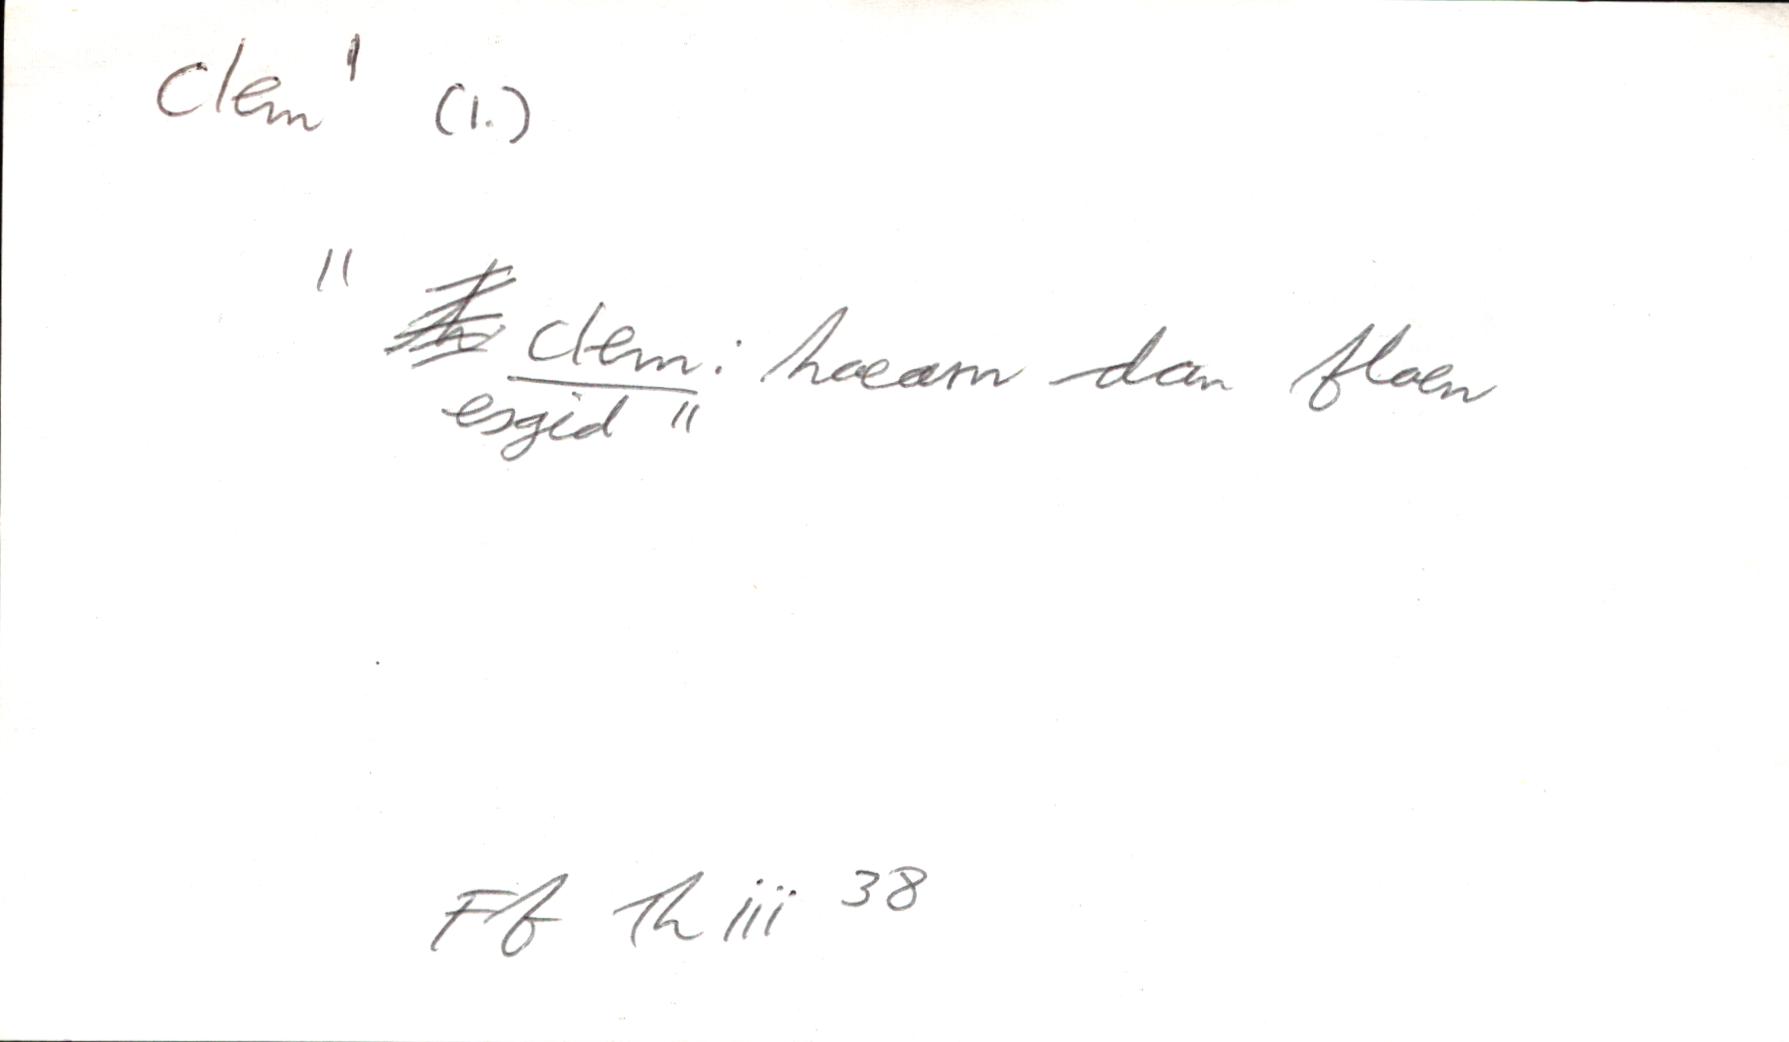 clem¹ (1.)
" clem: haearn dan flaen
esgid "
Ff Th iii 38